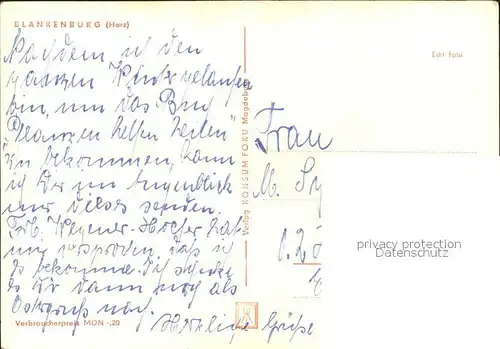 BLANKENBURG (Harz)
Nachdem ich den
ganzen Winter gelaufen
bin, um das Buch
"Pflanzen helfen heilen"
zu bekommen, kann
ich Dir im Augenblick
nur dieses senden.
Frl. Wegener-Höcher hat
mir versprochen, daß ich
es bekomme. Ich schicke
es Dir dann noch als
Ostergruß nach.
Herzliche Grüße
Verbraucherpreis MDN -,20
Verlag KONSUM FOKU Magdeburg
Echt Foto
Frau
M.
privacy protection
Datenschutz